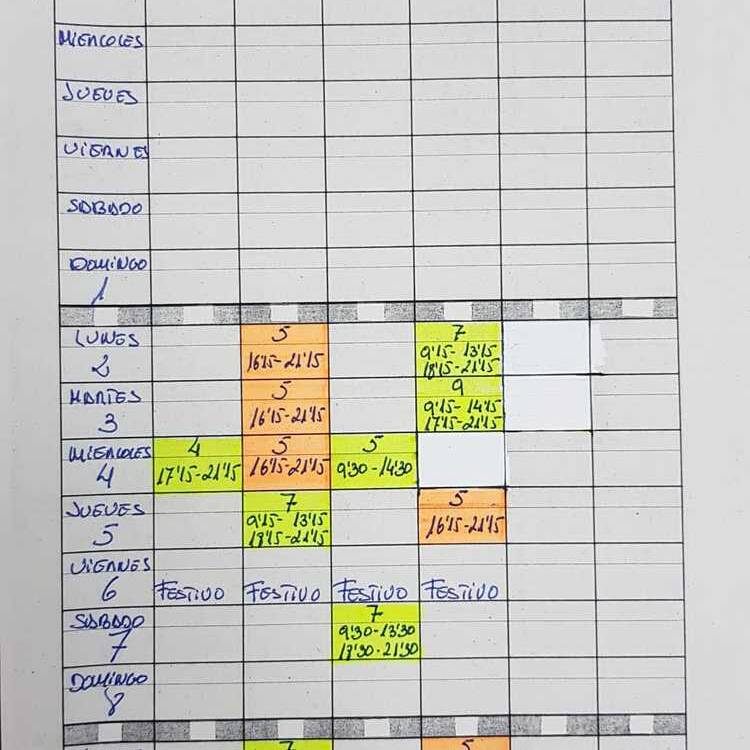 MIERCOLES
JUEVES
VIERNES
SABADO
DOMINGO
1
LUNES
2
5
16'15-21'15
7
9'15-13'15
18'15-21'15
MARTES
3
5
16'15-21'15
9
9'15-14'15
17'15-21'15
MIERCOLES
4
4
17'15-21'15
5
16'15-21'15
5
9'30-14'30
JUEVES
5
7
9'15-13'15
18'15-21'15
5
16'15-21'15
VIERNES
6
FESTIVO FESTIVO FESTIVO FESTIVO
SABADO
7
7
9'30-13'30
18'30-21'30
DOMINGO
8
7
5